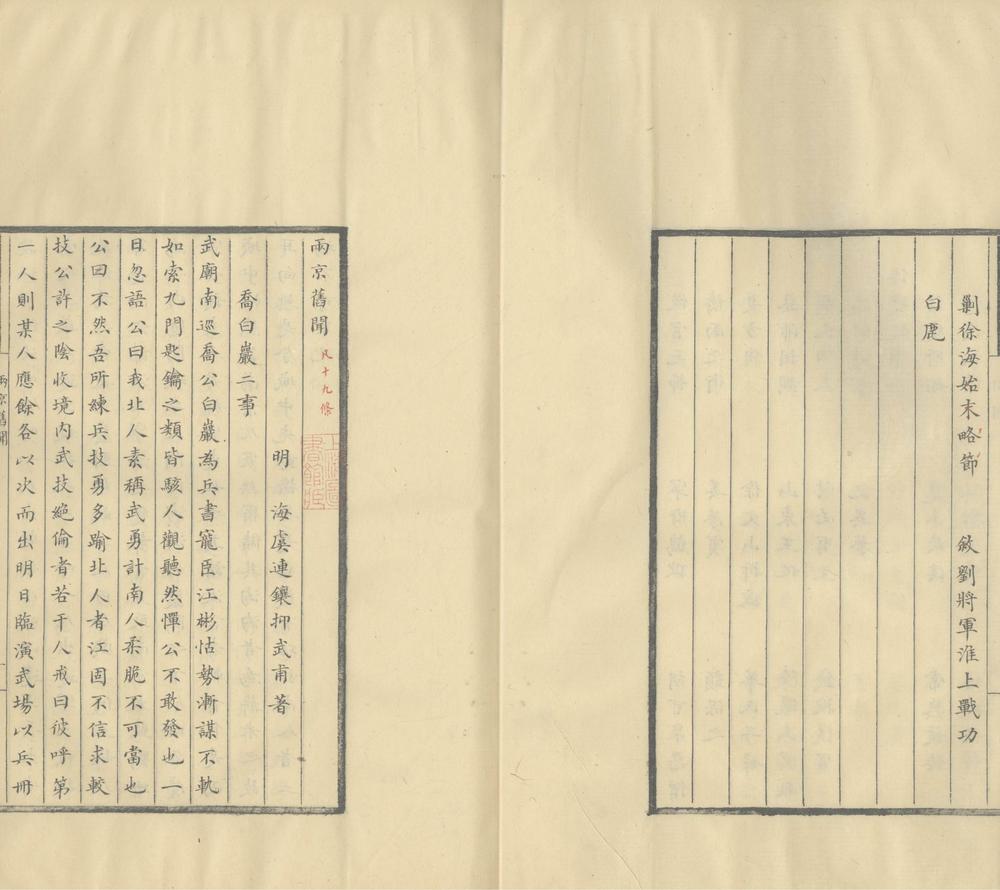 剿徐海始末略節　敘劉將軍淮上戰功
白鹿
兩京舊聞　凡十九條
明　海虞連鑲抑武甫著
喬白巖二事
武廟南巡喬公白巖為兵書寵臣江彬怙勢漸謀不軌
如索九門匙鑰之類皆駭人觀聽然憚公不敢發也一
日忽語公曰我北人素稱武勇計南人柔脆不可當也
公曰不然吾所練兵技勇多踰北人者江固不信求較
技公許之陰收境內武技絕倫者若干人戒曰彼呼第
一人則某人應餘各以次而出明日臨演武場以兵冊
兩京舊聞